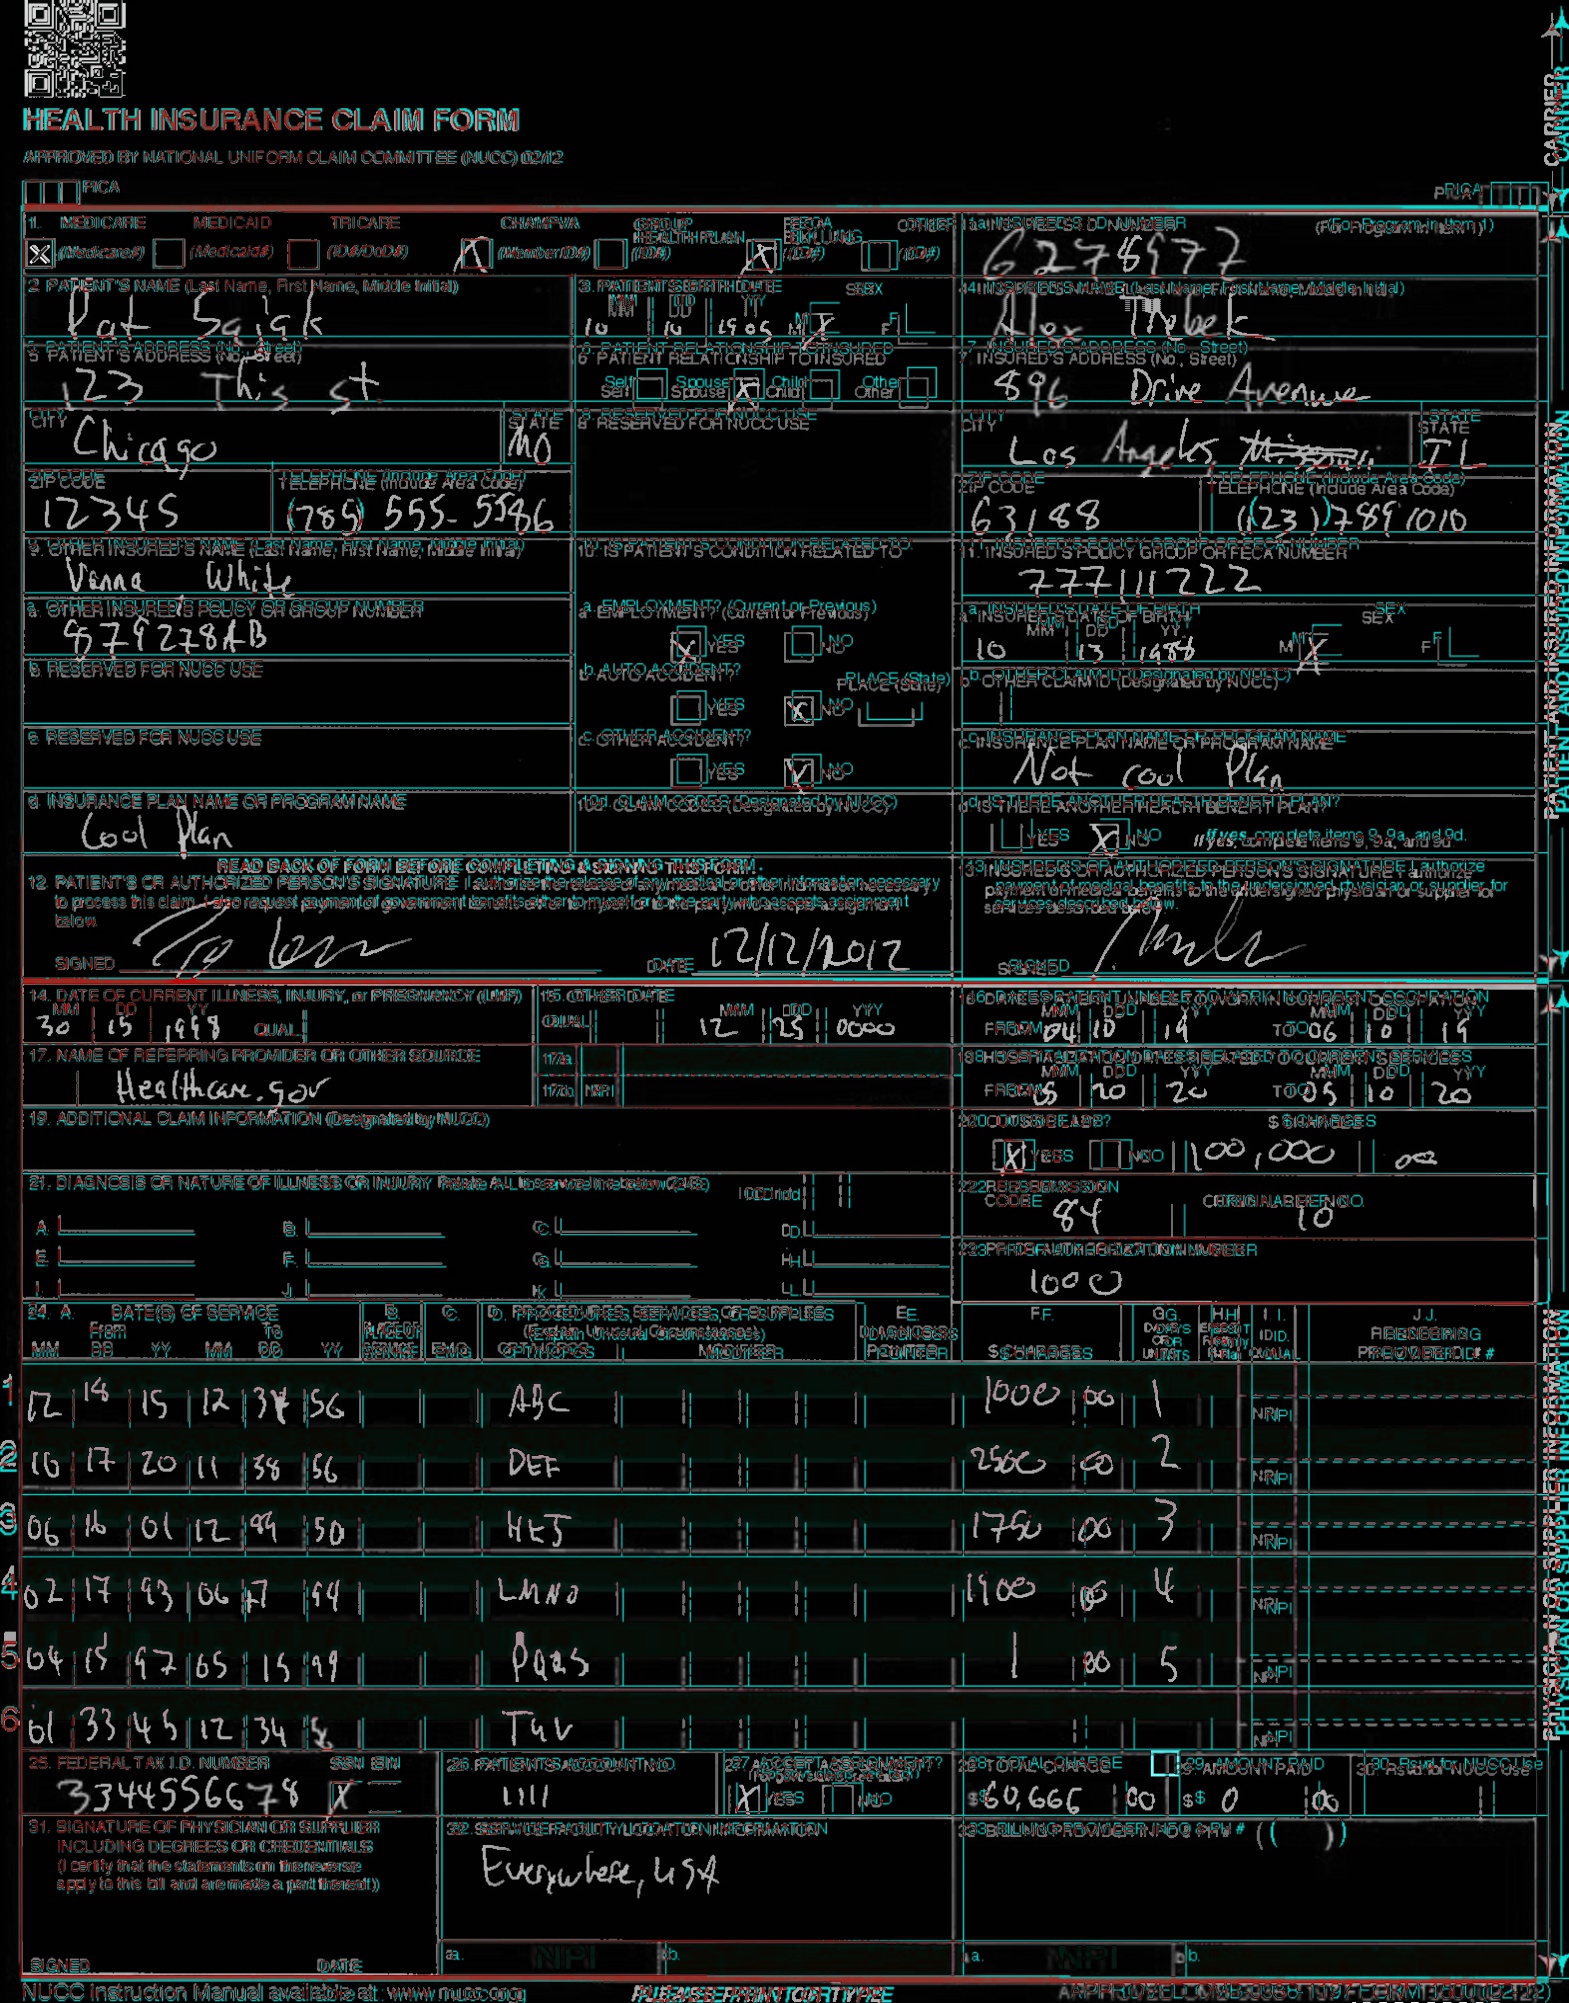 HEALTH INSURANCE CLAIM FORM
APPROVED BY NATIONAL UNIFORM CLAIM COMMITTEE (NUCC) 02/12
PICA
PICA
CARRIER
1. MEDICARE MEDICAID TRICARE CHAMPVA GROUP HEALTH PLAN FECA BLK LUNG OTHER
(Medicare#) (Medicaid#) (ID#/DoD#) (Member ID#) (ID#) (ID#) (ID#)
1a. INSURED'S I.D. NUMBER (For Program in Item 1)
6278977
2. PATIENT'S NAME (Last Name, First Name, Middle Initial)
Pat Sajak
3. PATIENT'S BIRTH DATE SEX
MM DD YY
10 10 1905 M X F
4. INSURED'S NAME (Last Name, First Name, Middle Initial)
Alex Trebek
5. PATIENT'S ADDRESS (No., Street)
123 This st.
6. PATIENT RELATIONSHIP TO INSURED
Self Spouse X Child Other
7. INSURED'S ADDRESS (No., Street)
896 Drive Avenue
CITY STATE
Chicago MO
8. RESERVED FOR NUCC USE
CITY STATE
Los Angeles IL
ZIP CODE TELEPHONE (Include Area Code)
12345 (789) 555-5586
ZIP CODE TELEPHONE (Include Area Code)
63188 (123) 7891010
9. OTHER INSURED'S NAME (Last Name, First Name, Middle Initial)
Vanna White
10. IS PATIENT'S CONDITION RELATED TO:
11. INSURED'S POLICY GROUP OR FECA NUMBER
777111222
a. OTHER INSURED'S POLICY OR GROUP NUMBER
879278AB
a. EMPLOYMENT? (Current or Previous)
X YES NO
a. INSURED'S DATE OF BIRTH SEX
MM DD YY
10 13 1988 M X F
b. RESERVED FOR NUCC USE
b. AUTO ACCIDENT? PLACE (State)
YES X NO
b. OTHER CLAIM ID (Designated by NUCC)
c. RESERVED FOR NUCC USE
c. OTHER ACCIDENT?
YES X NO
c. INSURANCE PLAN NAME OR PROGRAM NAME
Not cool Plan
d. INSURANCE PLAN NAME OR PROGRAM NAME
Cool Plan
10d. CLAIM CODES (Designated by NUCC)
d. IS THERE ANOTHER HEALTH BENEFIT PLAN?
YES X NO If yes, complete items 9, 9a, and 9d.
READ BACK OF FORM BEFORE COMPLETING & SIGNING THIS FORM.
12. PATIENT'S OR AUTHORIZED PERSON'S SIGNATURE I authorize the release of any medical or other information necessary
to process this claim. I also request payment of government benefits either to myself or to the party who accepts assignment
below.
SIGNED DATE 12/12/2012
13. INSURED'S OR AUTHORIZED PERSON'S SIGNATURE I authorize
payment of medical benefits to the undersigned physician or supplier for
services described below.
SIGNED
PATIENT AND INSURED INFORMATION
14. DATE OF CURRENT ILLNESS, INJURY, or PREGNANCY (LMP)
MM DD YY
30 15 1998 QUAL.
15. OTHER DATE
QUAL. MM DD YY
12 25 0000
16. DATES PATIENT UNABLE TO WORK IN CURRENT OCCUPATION
MM DD YY MM DD YY
FROM 04 10 19 TO 06 10 19
17. NAME OF REFERRING PROVIDER OR OTHER SOURCE
Healthcare.gov
17a.
17b. NPI
18. HOSPITALIZATION DATES RELATED TO CURRENT SERVICES
MM DD YY MM DD YY
FROM 05 20 20 TO 05 10 20
19. ADDITIONAL CLAIM INFORMATION (Designated by NUCC)
20. OUTSIDE LAB? $ CHARGES
X YES NO 100,000
21. DIAGNOSIS OR NATURE OF ILLNESS OR INJURY Relate A-L to service line below (24E) ICD Ind.
A. B. C. D.
E. F. G. H.
I. J. K. L.
22. RESUBMISSION
CODE ORIGINAL REF. NO.
84 10
23. PRIOR AUTHORIZATION NUMBER
1000
24. A. DATE(S) OF SERVICE B. C. D. PROCEDURES, SERVICES, OR SUPPLIES E. F. G. H. I. J.
From To PLACE OF (Explain Unusual Circumstances) DIAGNOSIS DAYS OR EPSDT ID. RENDERING
MM DD YY MM DD YY SERVICE EMG CPT/HCPCS MODIFIER POINTER $ CHARGES UNITS Family Plan QUAL. PROVIDER ID. #
1 12 18 15 12 56 ABC 1000 00 1 NPI
2 10 17 20 11 38 56 DEF 2500 00 2 NPI
3 06 16 01 12 99 50 HIJ 1750 00 3 NPI
4 02 17 93 06 17 94 LMNO 1900 00 4 NPI
5 04 15 97 05 15 99 PQRS 1 00 5 NPI
6 01 33 45 12 34 TUV NPI
25. FEDERAL TAX I.D. NUMBER SSN EIN
3344556678 X
26. PATIENT'S ACCOUNT NO.
1111
27. ACCEPT ASSIGNMENT?
X YES NO
28. TOTAL CHARGE
$ 60,666 00
29. AMOUNT PAID
$ 0 00
30. Rsvd for NUCC Use
31. SIGNATURE OF PHYSICIAN OR SUPPLIER
INCLUDING DEGREES OR CREDENTIALS
(I certify that the statements on the reverse
apply to this bill and are made a part thereof.)
SIGNED DATE
32. SERVICE FACILITY LOCATION INFORMATION
Everywhere, USA
a. NPI b.
33. BILLING PROVIDER INFO & PH # ( )
a. NPI b.
PHYSICIAN OR SUPPLIER INFORMATION
NUCC Instruction Manual available at: www.nucc.org
PLEASE PRINT OR TYPE